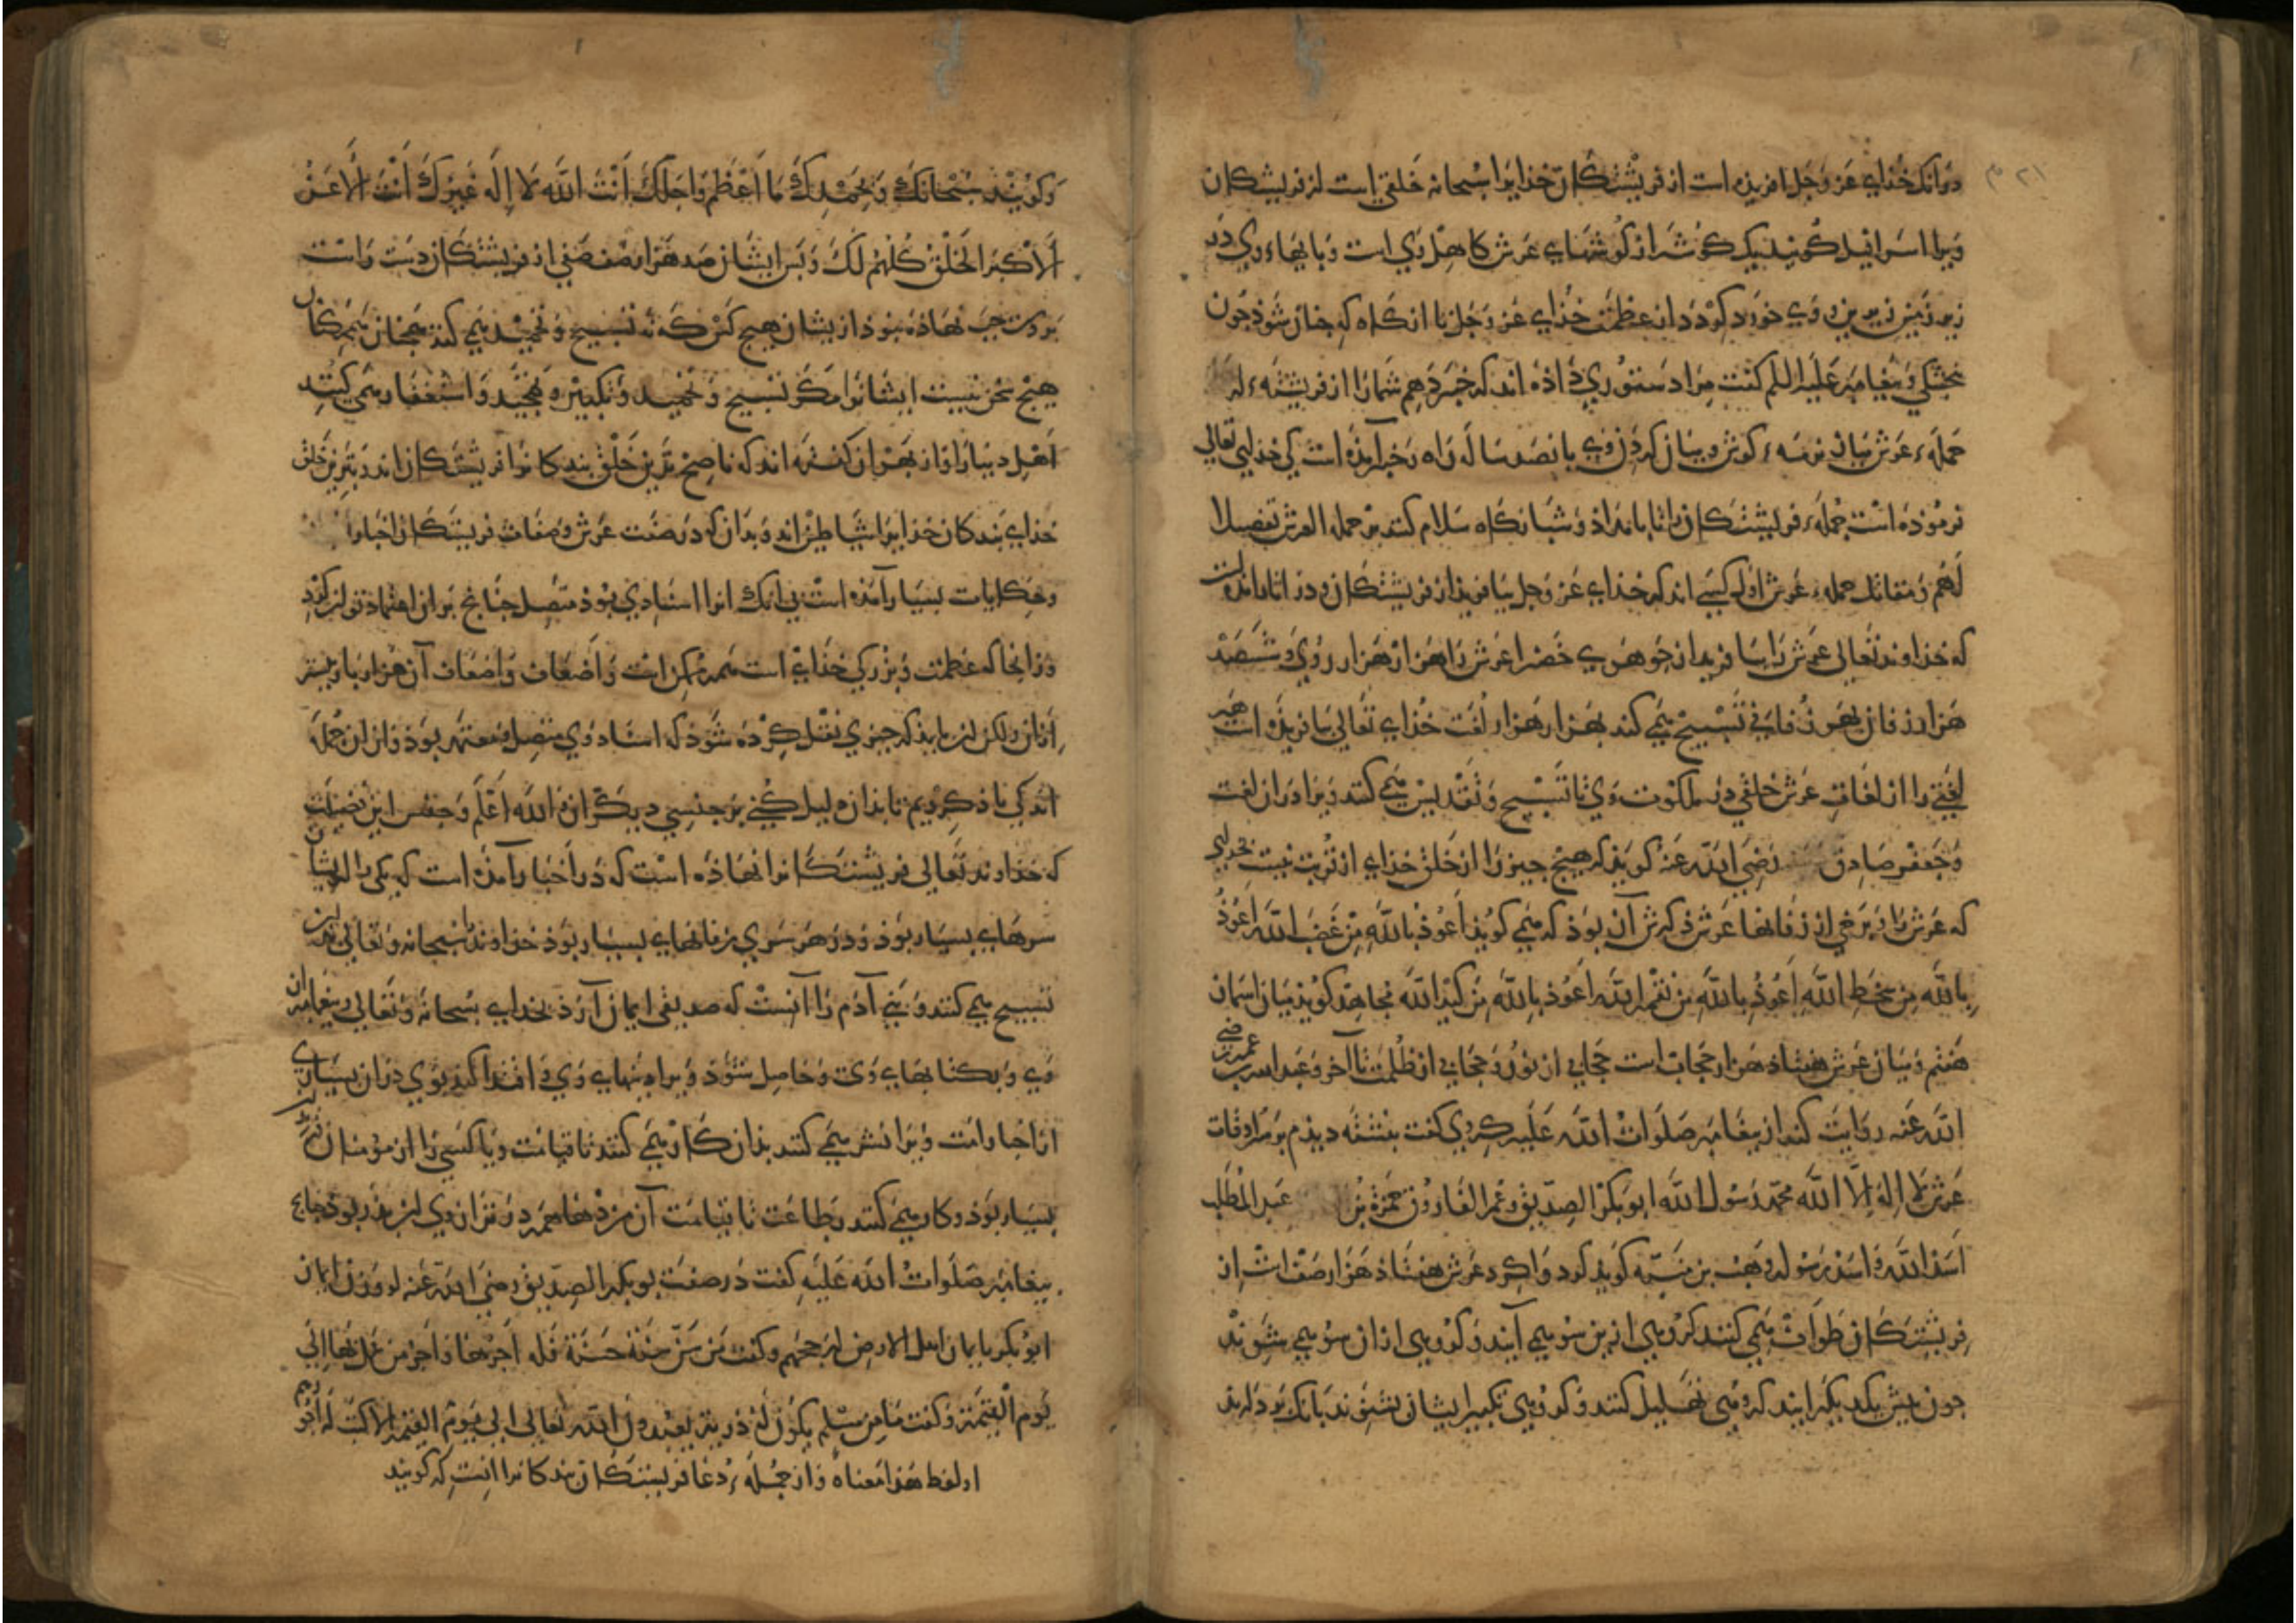 در آنک خدای عز و جل افریده است از فریشتکان خدایرا سبحانه خلقی است از فریشتکان
ویرا اسرافیل کویند یک کوشه از کوشهای عرش کاهل وی است و پایهاء وی در
زیر زمین زیرین و وی خورد کردد از عظمت خدای عز و جل تا انکاه که جنان شوذ جون
بنجشکی و پیغامبر علیه السلم کفت مرا دستوری داذه اند که خبر دهم شما را از فریشته‌ء از
حمله‌ء عرش میان نرمه‌ء کوش و میان کردن وی پانصد ساله راه و خبر آمذه است کی خذای تعالی
فرموذه است جمله‌ء فریشتکان را تا بامداذ و شبانکاه سلام کنند بر حمله العرش تفضیلا
لهم و مقاتل حمله‌ء عرش اول کسی اند که خذای عز و جل بیافریذ از فریشتکان و در اثار امذه است
که خذاوند تعالی عرش را بیافرید از جوهری خضرا عرش را هزار هزار روی و ششصد
هزار زفان بهر زفانی تسبیح می کند بهزار هزار لغت خذای تعالی بیافریذه است هر
لغتی را از لغات عرش خلقی در ملکوت وی تا تسبیح و تقدیس می کنند ویرا در ان لغت
و جعفر صادق رضی الله عنه کویذ که هیج جیز را از خلق خذای از تربت نیست
که عرش را و برخی از زفانها عرش ذکرش آن بوذ که می کویذ اعوذ بالله من غضب الله اعوذ
بالله من سخط الله اعوذ بالله من نقمه الله اعوذ بالله من کید الله مجاهد کویذ میان اسمان
هفتم و میان عرش هفتاذ هزار حجاب است حجابی از نور و حجابی از ظلمت تا آخر و عبد الله عمر رضی
الله عنه روایت کند از پیغامبر صلوات الله علیه کی کفت بنشته دیذم بر سرادقات
عرش لا اله الا الله محمد رسول الله ابو بکر الصدیق و عمر الفاروق حمزة بن عبد المطلب
اسد الله و اسد رسوله وهب بن منبه کویذ کرد واکرد عرش هفتاذ هزار صف است از
فریشتکان طواف می کنند کروهی از ین سو می آیند و کروهی از ان سو می شوند
جون پیش یکدیکر ایند کروهی تهلیل کنند و کروهی تکبیر ایشان بشنوند بانک بردارند
و کویند سبحانک و بحمدک ما اعظم و اجلک انت الله لا اله غیرک انت الاعز
الاکبر الخلق کلهم لک و پس ایشان صد هزار صف صفی از فریشتکان دست راست
بر دست جب نهاذه بوذ از یشان هیج کس که نه تسبیح و تحمید می کند همجنان
هیج سخن نیست ایشانرا مکر تسبیح و تحمید و تکبیر و تمجید و استغفار می کنند
اهل دنیا را و از بهر ان کفته اند که ناصح ترین خلق بندکانرا فریشتکان اند و بترین خلق
خذای بندکان خذایرا شیاطین اند و بدان که در صفت عرش و صفات فریشتکان اخبار
و حکایات بسیار آمذه است بی انک انرا اسنادی بوذ متصل جنانج بر ان اعتماد توان کرد
و زانجا که عظمت و بزرکی خذای است همه ممکن است و اضعاف و اضعاف آن هزار بار بیشتر
از ان ولکن ان بایذ که جیزی نقل کرده شوذ که اسناد وی متصل و معتمد بوذ و از ان جمله
اندکی یاذ کردیم تا بدان دلیل کنی بر جنسی دیکر از ان و الله اعلم و جنس این فضلست
که خذاوند تعالی فریشتکانرا نهاذه است که در اخبار آمذه است که یکی را از ایشان
سرهای بسیار بوذ و در هر سری زفانهای بسیار بوذ خذاوند را سبحانه و تعالی بذین
تسبیح می کنند و بنی آدم را آنست که صدیقی ایمان آرذ بخدای سبحانه و تعالی و پیغامبران
وی و بکتابهای وی و حاصل شوذ ویرا و بنهای وی و اقتدا کند بوی در ان بسیاری
از اخیار امت ویرا نشر می کنند بذان کار می کنند تا قیامت و یا کسی را از مومنان
بسیار بوذ و کار می کنند بطاعت تا قیامت آن مزدها همه در میزان وی این بذر بوذ جنانج
پیغامبر صلوات الله علیه کفت در صفت بوبکر الصدیق رضی الله عنه لو وزن ایمان
ابوبکر بایمان اهل الارض لرجحهم و کفت من سن سنة حسنة فله اجرها و اجر من عمل بها الی
یوم القیمة و کفت ما من مسلم یکون له ذریة یعبدون الله تعالی الی یوم القیمة الا کتب له اجر
او لفظ هذا معناه و از جمله‌ء دعا فریشتکان بندکانرا انست که کویند